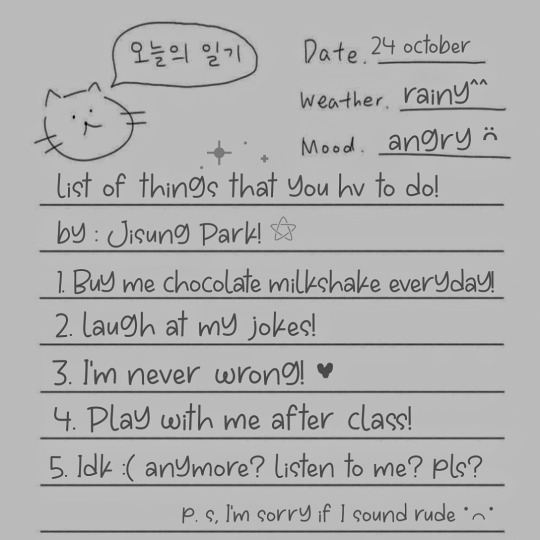 오늘의 일기
Date. 24 october
Weather. rainy^^
Mood. angry
list of things that you hv to do!
by : Jisung Park!
1. Buy me chocolate milkshake everyday!
2. laugh at my jokes!
3. I'm never wrong! ♥
4. Play with me after class!
5. Idk :( anymore? listen to me? pls?
p. s, I'm sorry if I sound rude